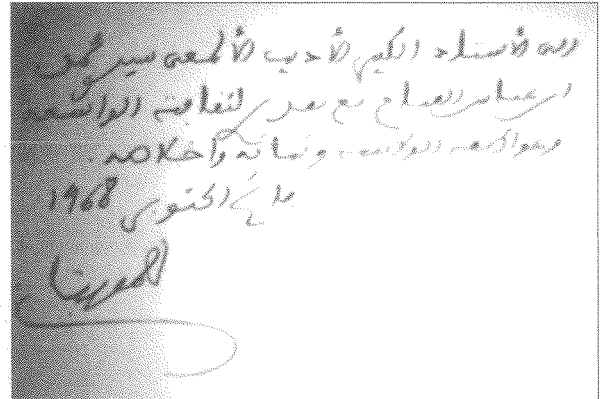 إلى الأستاذ الكبير الأديب الألمعي سيدي محمد
ابن عباس القباج مع تقديري لثقافته الواسعة
ومواكبته الدائمة وتهانيه وإخلاصه.
أكتوبر 1968